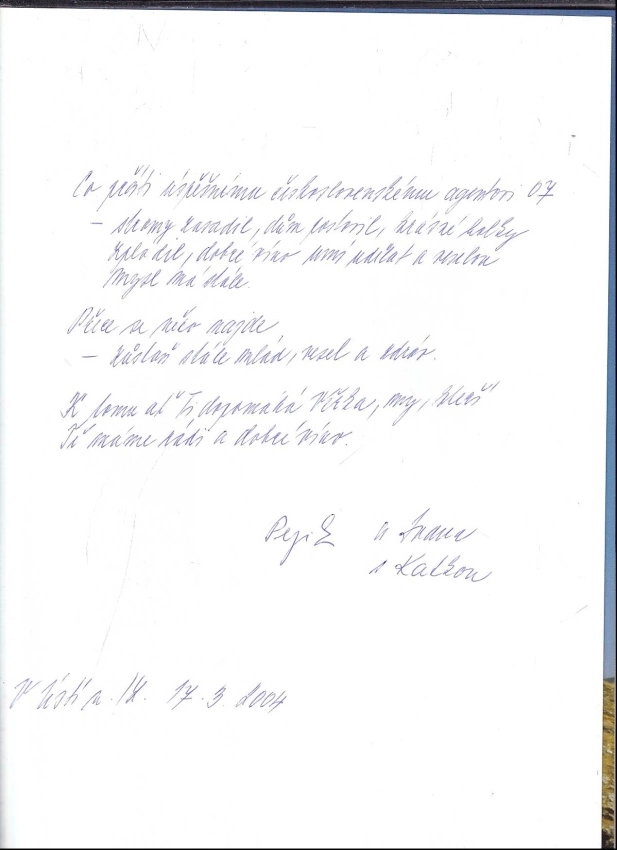 Co přáti úspěšnému československému agentovi 07
– stromy zasadil, dům postavil, krásné holky
zplodil, dobré víno umí udělat a veselou
mysl má stále.
Přece se něco najde
– zůstaň stále mlád, vesel a zdráv.
K tomu ať Ti dopomáhá Věrka, my, kteří
Tě máme rádi a dobré víno.
Pepík a Ivana
s Katkou
V Ústí n. 17. 3. 2004